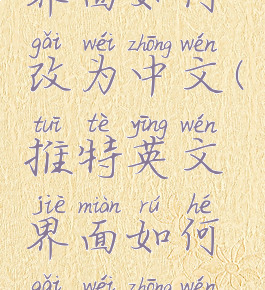 界面如何
gǎi wéi zhōng wén
改为中文(
tuī tè yīng wén
推特英文
jiè miàn rú hé
界面如何
gǎi wéi zhōng wén